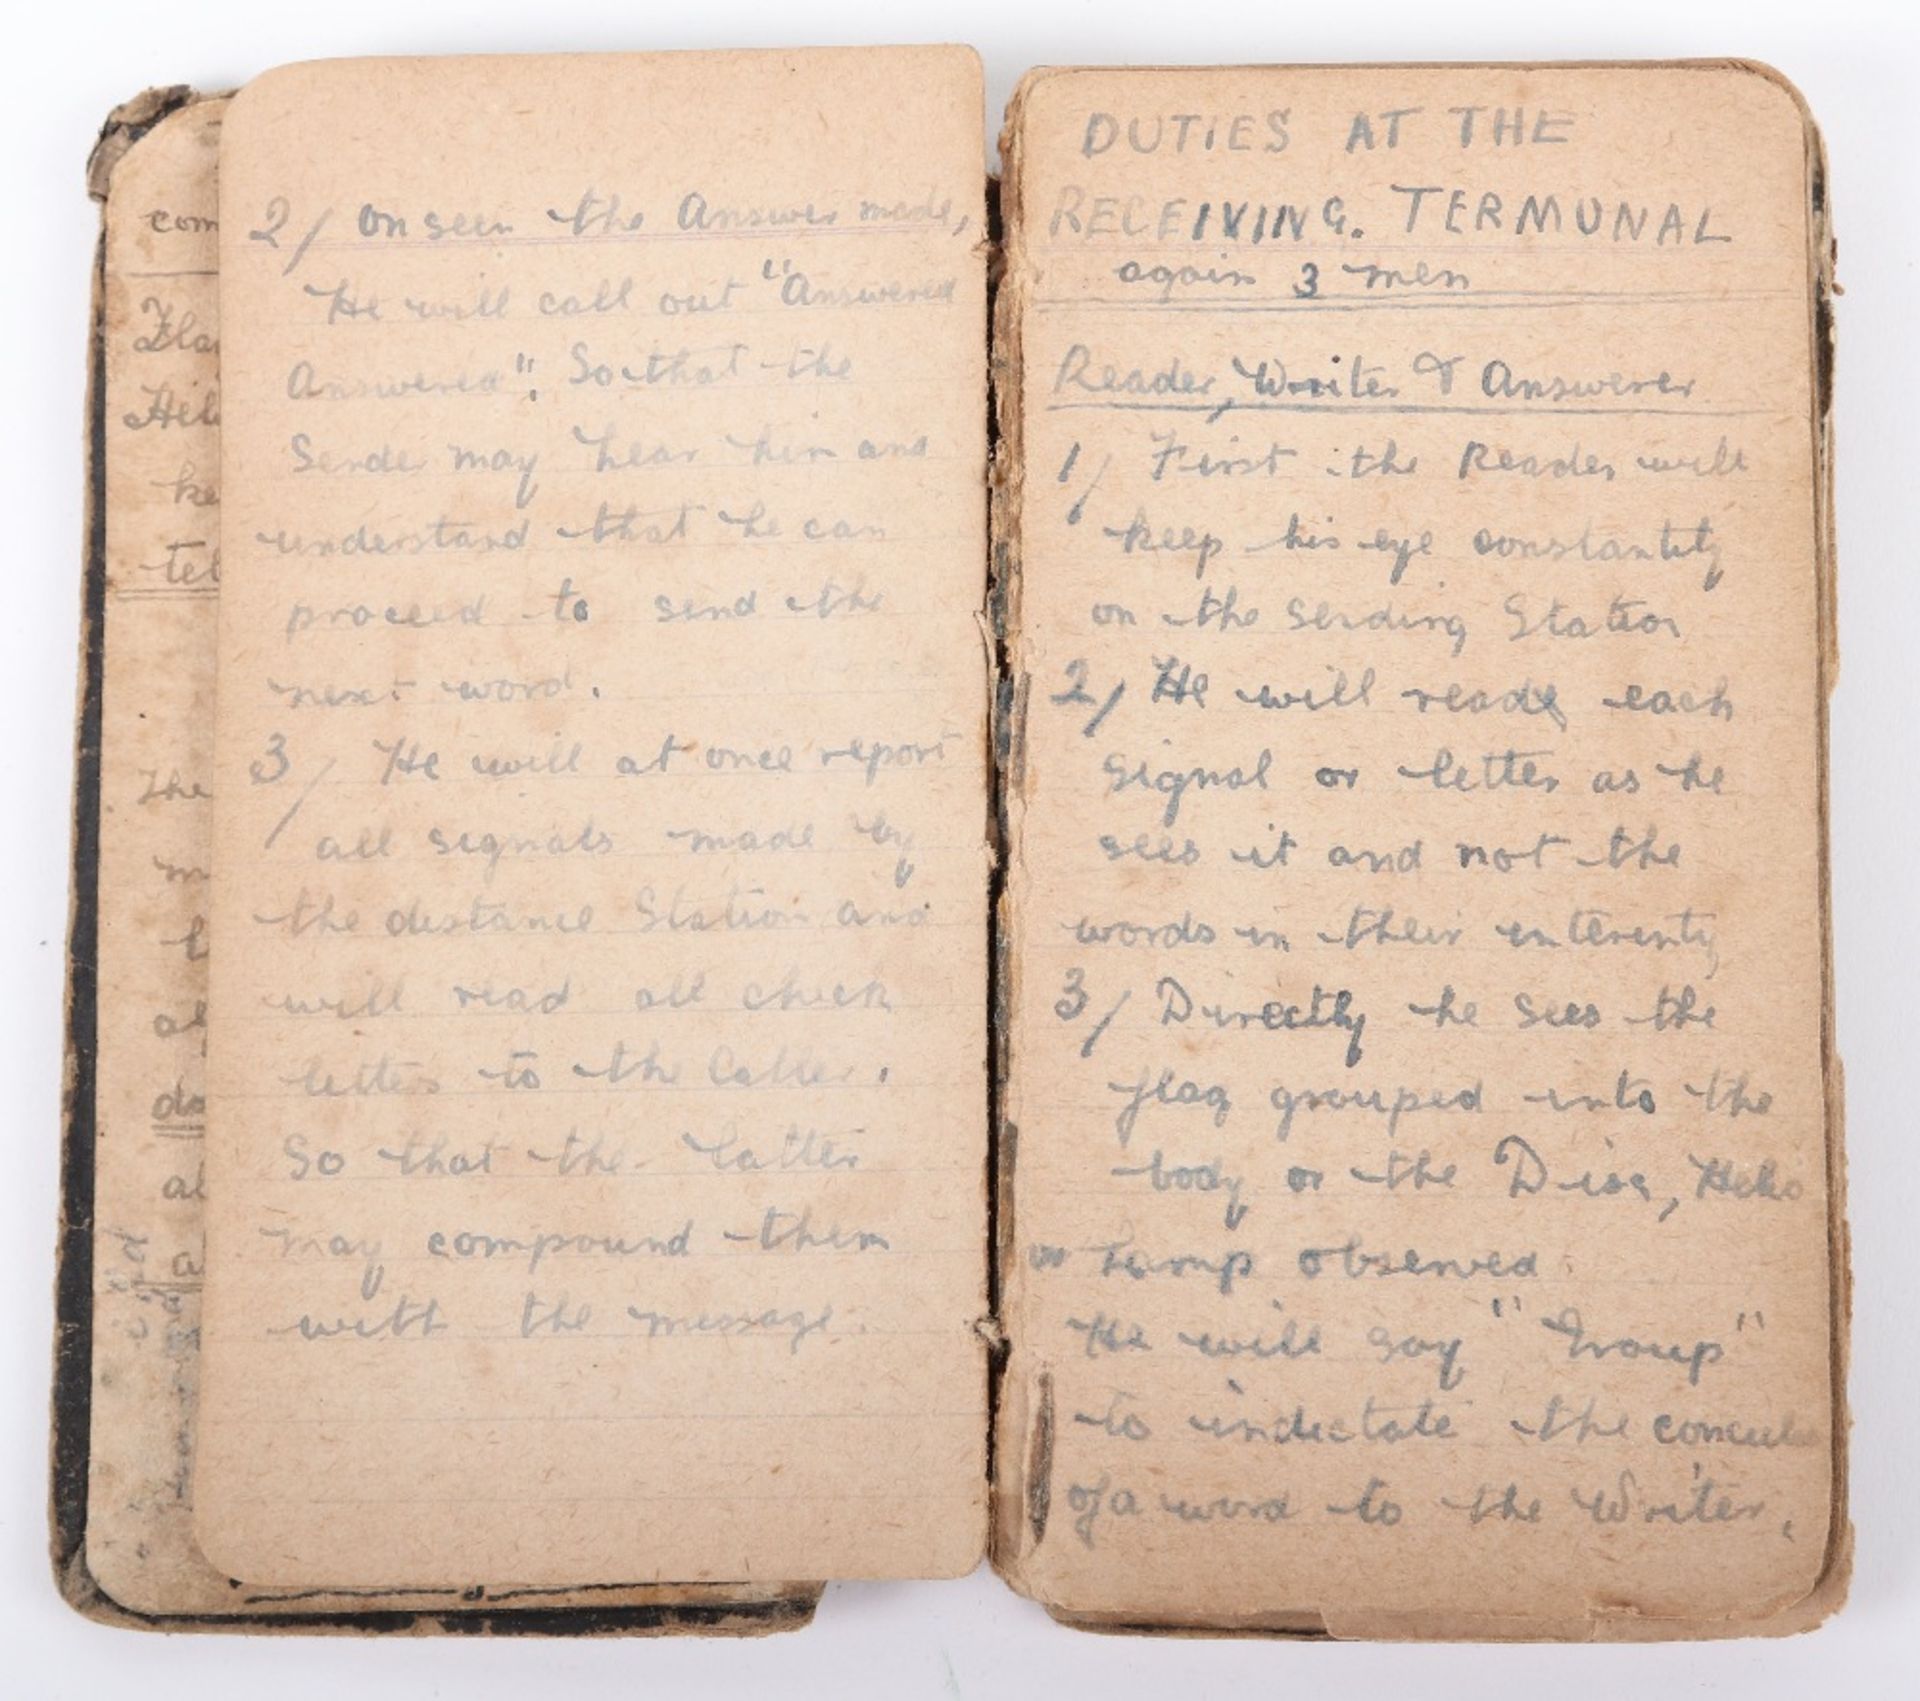 2/ on seen the Answer made,
He will call out "Answered
Answered". So that the
Sender may hear him and
understand that he can
proceed to send the
next word.
3/ He will at once report
all signals made by
the distance Station and
will read all check
letters to the Caller.
So that the latter
may compound them
with the message.
com
Hel
ke
tel
The
m
al
do
al
a
DUTIES AT THE
RECEIVING. TERMUNAL
again 3 men
Reader, Writer & Answerer
1/ First the Reader will
keep his eye constantity
on the Sending Station
2/ He will read each
Signal or letter as he
sees it and not the
words in their interenty
3/ Directly he sees the
flag grouped into the
body or the Disc, Helio
or Lamp observed
He will say "Group"
to indectate the
of a word to the Writer,